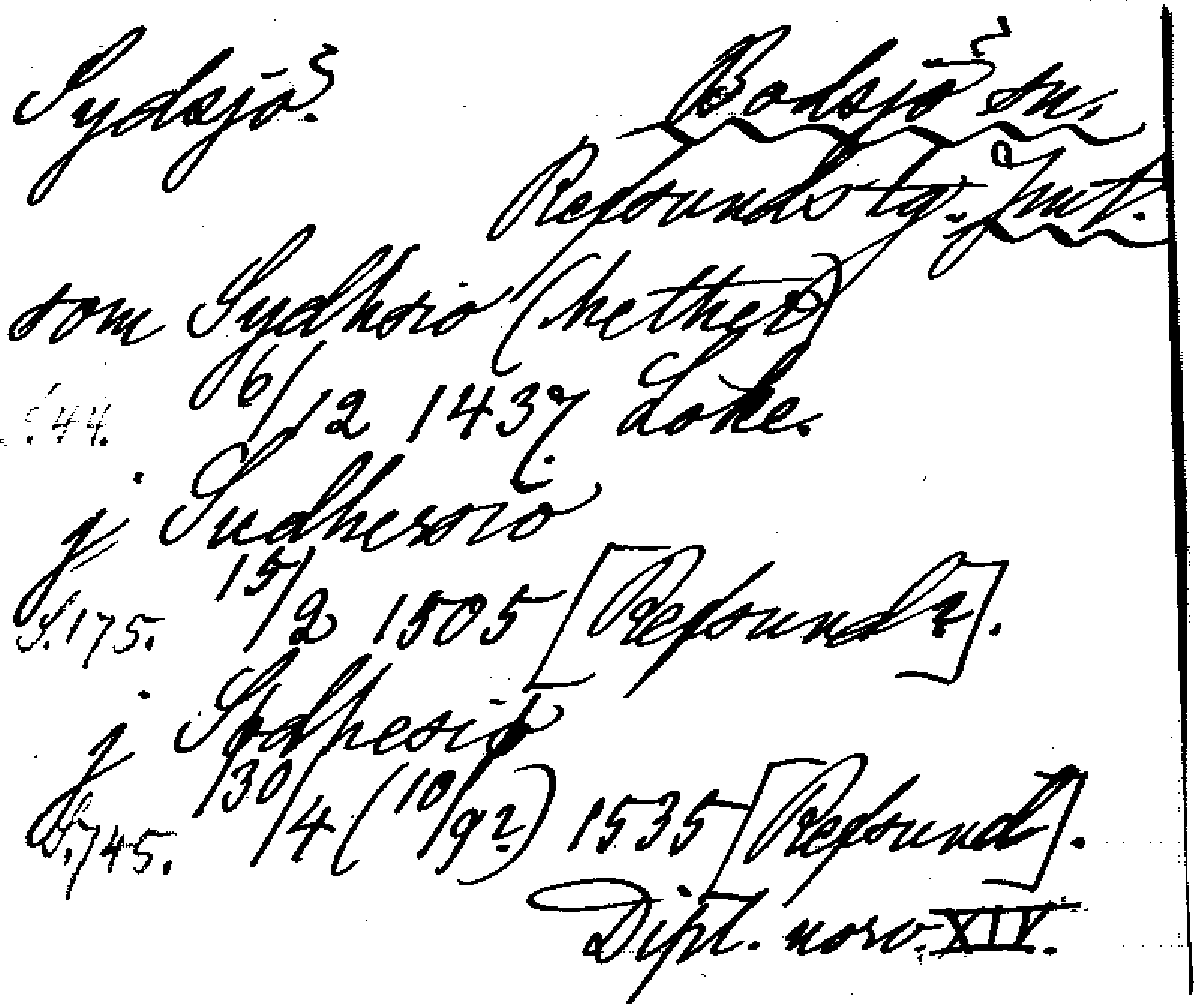 Sydsjö. Bodsjö sn.
Refsunds tg. Jmt.
som Sydhsio (hether)
S. 44. 6/12 1437. Loke.
j Sudhersio
S. 175. 15/2 1505 [Refsund?].
j Sødhesiø
S. 745. 30/4 (10/9?) 1535 [Refsund].
Dipl. norv. XIV.